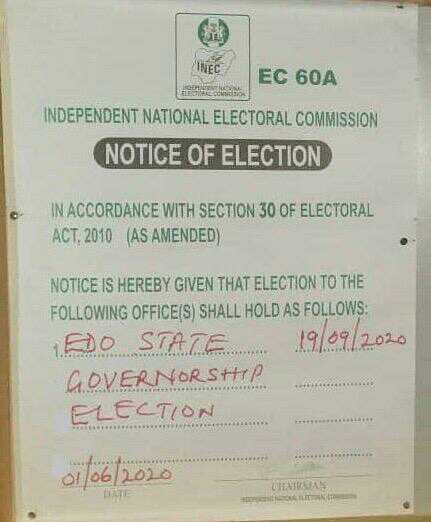 INEC
INDEPENDENT NATIONAL
ELECTORAL COMMISSION
EC 60A
INDEPENDENT NATIONAL ELECTORAL COMMISSION
NOTICE OF ELECTION
IN ACCORDANCE WITH SECTION 30 OF ELECTORAL
ACT, 2010 (AS AMENDED)
NOTICE IS HEREBY GIVEN THAT ELECTION TO THE
FOLLOWING OFFICE(S) SHALL HOLD AS FOLLOWS:
1. EDO STATE 19/09/2020
GOVERNORSHIP
ELECTION
01/06/2020
DATE CHAIRMAN
INDEPENDENT NATIONAL ELECTORAL COMMISSION